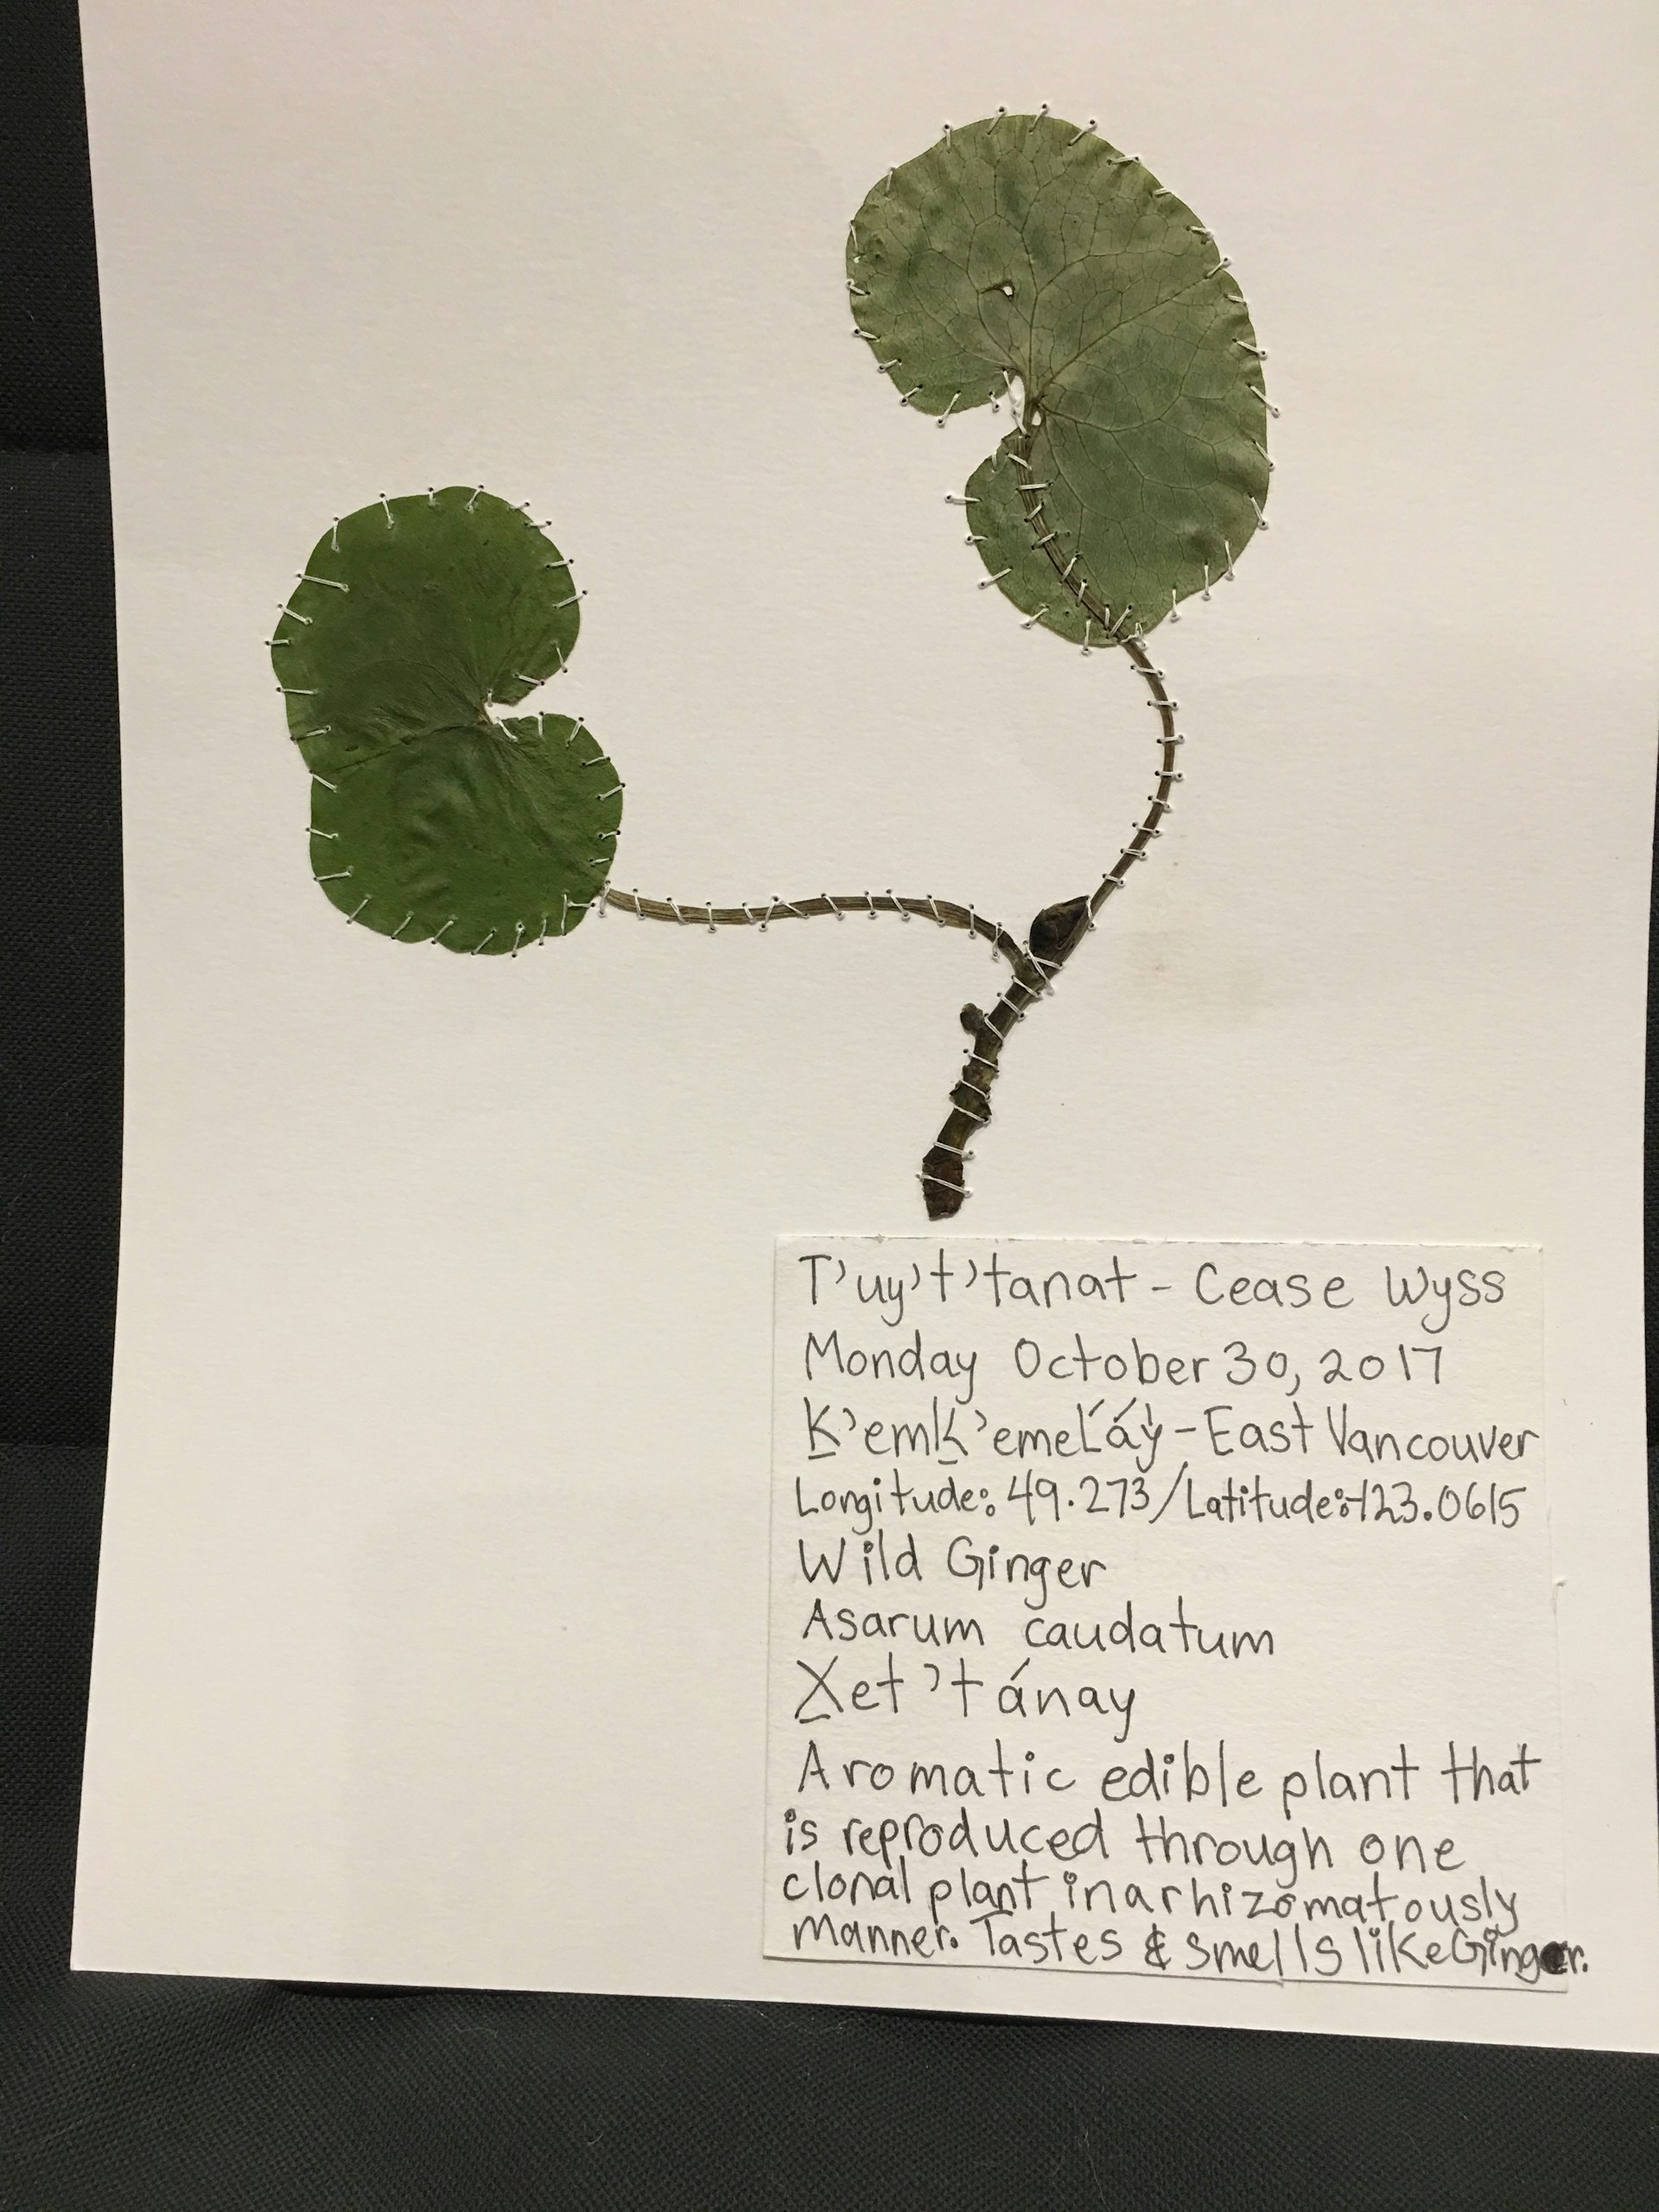 T'uy't'tanat - Cease Wyss
Monday October 30, 2017
K̲'emK̲'emeĹáy̓ - East Vancouver
Longitude: 49.273/Latitude:-123.0615
Wild Ginger
Asarum caudatum
X̲et't ánay
Aromatic edible plant that
is reproduced through one
clonal plant in a rhizomatously
manner. Tastes & smells like Ginger.